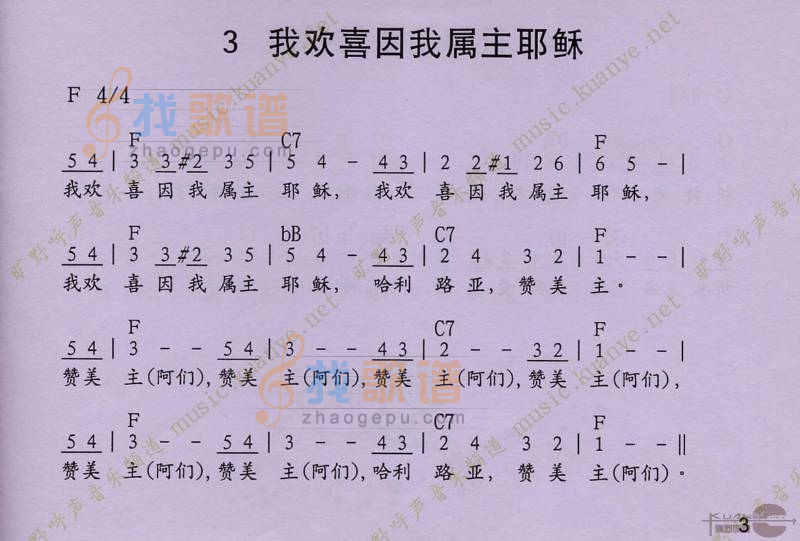 3 我欢喜因我属主耶稣
F 4/4
F C7 F
5 4 | 3 3 #2 3 5 | 5 4 - 4 3 | 2 2 #1 2 6 | 6 5 - |
我欢 喜 因 我 属主 耶 稣, 我欢 喜 因 我 属主 耶 稣,
F bB C7 F
5 4 | 3 3 #2 3 5 | 5 4 - 4 3 | 2 4 3 2 | 1 - - |
我欢 喜 因 我 属主 耶 稣, 哈利 路 亚, 赞 美 主。
F C7 F
5 4 | 3 - - 5 4 | 3 - - 4 3 | 2 - - 3 2 | 1 - - |
赞美 主(阿们), 赞美 主(阿们), 赞美 主(阿们), 赞美 主(阿们),
F C7 F
5 4 | 3 - - 5 4 | 3 - - 4 3 | 2 4 3 2 | 1 - - ‖
赞美 主(阿们), 赞美 主(阿们), 哈利 路 亚, 赞 美 主(阿们)。
3
找歌谱
zhaogepu.com
找歌谱
zhaogepu.com
旷野呼声音乐频道 music.kuanye.net
旷野呼声音乐频道 music.kuanye.net